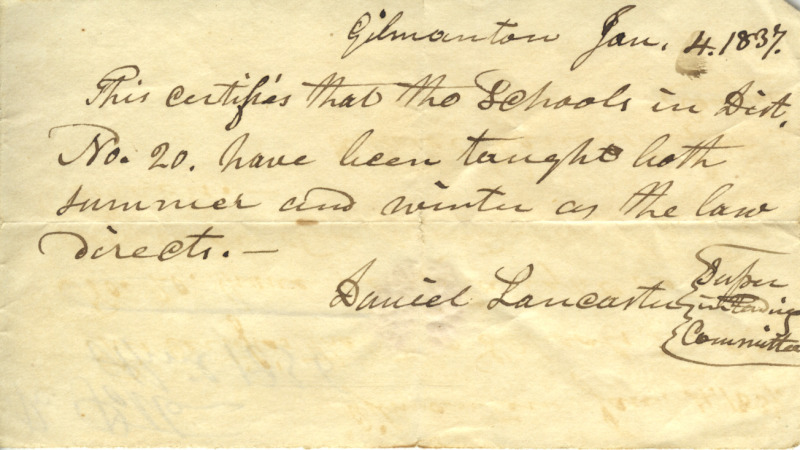 Gilmanton Jan. 4. 1837.
This certifies that the Schools in Dist.
No. 20. have been taught both
summer and winter as the law
directs.—
Daniel Lancaster Super
intending
Committee